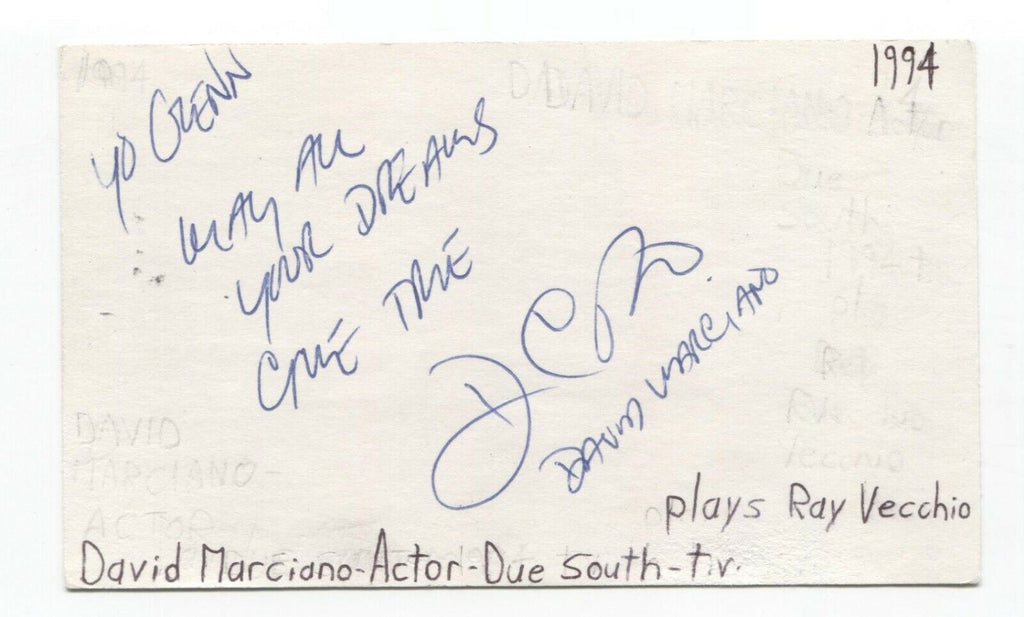 1994
YO GLENN
MAY ALL
YOUR DREAMS
COME TRUE
DAVID MARCIANO
plays Ray Vecchio
David Marciano-Actor-Due South-t.v.
DAVID
MARCIANO-
ACTOR-